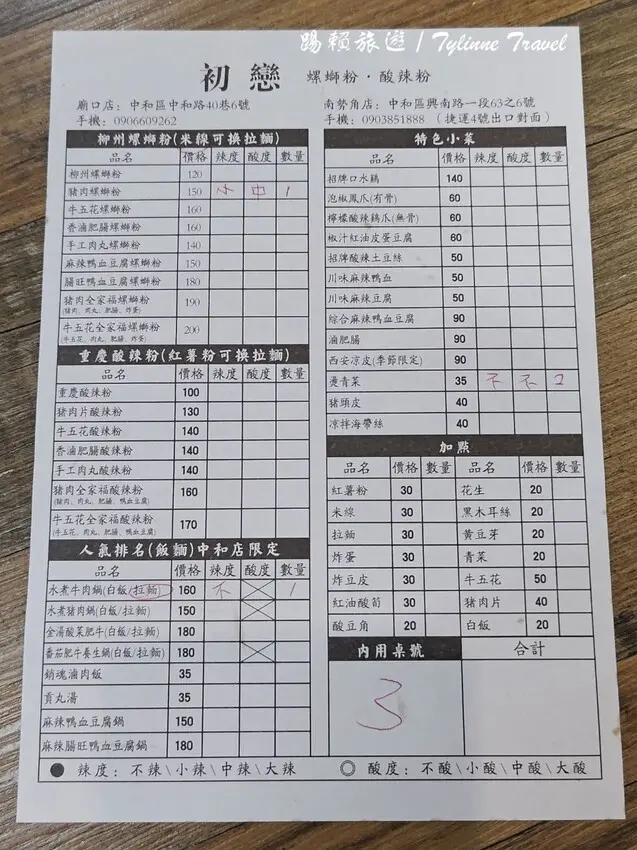 踢賴旅遊 / Tylinne Travel
初戀 螺螄粉·酸辣粉
廟口店：中和區中和路40巷6號
手機：0906609262
南勢角店：中和區興南路一段63之6號
手機：0903851888 (捷運4號出口對面)
柳州螺螄粉(米線可換拉麵)
品名 價格 辣度 酸度 數量
柳州螺螄粉 120
豬肉螺螄粉 150 小 中 1
牛五花螺螄粉 160
香滷肥腸螺螄粉 160
手工肉丸螺螄粉 140
麻辣鴨血豆腐螺螄粉 150
腸旺鴨血豆腐螺螄粉 180
豬肉全家福螺螄粉 190
(豬肉、肉丸、肥腸、炸蛋)
牛五花全家福螺螄粉 200
(牛五花、肉丸、肥腸、炸蛋)
重慶酸辣粉(紅薯粉可換拉麵)
品名 價格 辣度 酸度 數量
重慶酸辣粉 100
豬肉片酸辣粉 130
牛五花酸辣粉 140
香滷肥腸酸辣粉 140
手工肉丸酸辣粉 140
豬肉全家福酸辣粉 160
(豬肉、肉丸、肥腸、鴨血豆腐)
牛五花全家福酸辣粉 170
(牛五花、肉丸、肥腸、鴨血豆腐)
人氣排名(飯麵)中和店限定
品名 價格 辣度 酸度 數量
水煮牛肉鍋(白飯/拉麵) 160 不 1
水煮豬肉鍋(白飯/拉麵) 150
金湯酸菜肥牛(白飯/拉麵) 180
番茄肥牛養生鍋(白飯/拉麵) 180
銷魂滷肉飯 35
貢丸湯 35
麻辣鴨血豆腐鍋 150
麻辣腸旺鴨血豆腐鍋 180
特色小菜
品名 價格 辣度 酸度 數量
招牌口水鷄 140
泡椒鳳爪(有骨) 60
檸檬酸辣鷄爪(無骨) 60
椒汁紅油皮蛋豆腐 60
招牌酸辣土豆絲 50
川味麻辣鴨血 50
川味麻辣豆腐 50
綜合麻辣鴨血豆腐 90
滷肥腸 90
西安涼皮(季節限定) 90
燙青菜 35 不 不 2
豬頭皮 40
涼拌海帶絲 40
加點
品名 價格 數量 品名 價格 數量
紅薯粉 30 花生 20
米線 30 黑木耳絲 20
拉麵 30 黃豆芽 20
炸蛋 30 青菜 20
炸豆皮 30 牛五花 50
紅油酸筍 30 豬肉片 40
酸豆角 20 白飯 20
內用桌號 合計
3
辣度：不辣\小辣\中辣\大辣
酸度：不酸\小酸\中酸\大酸